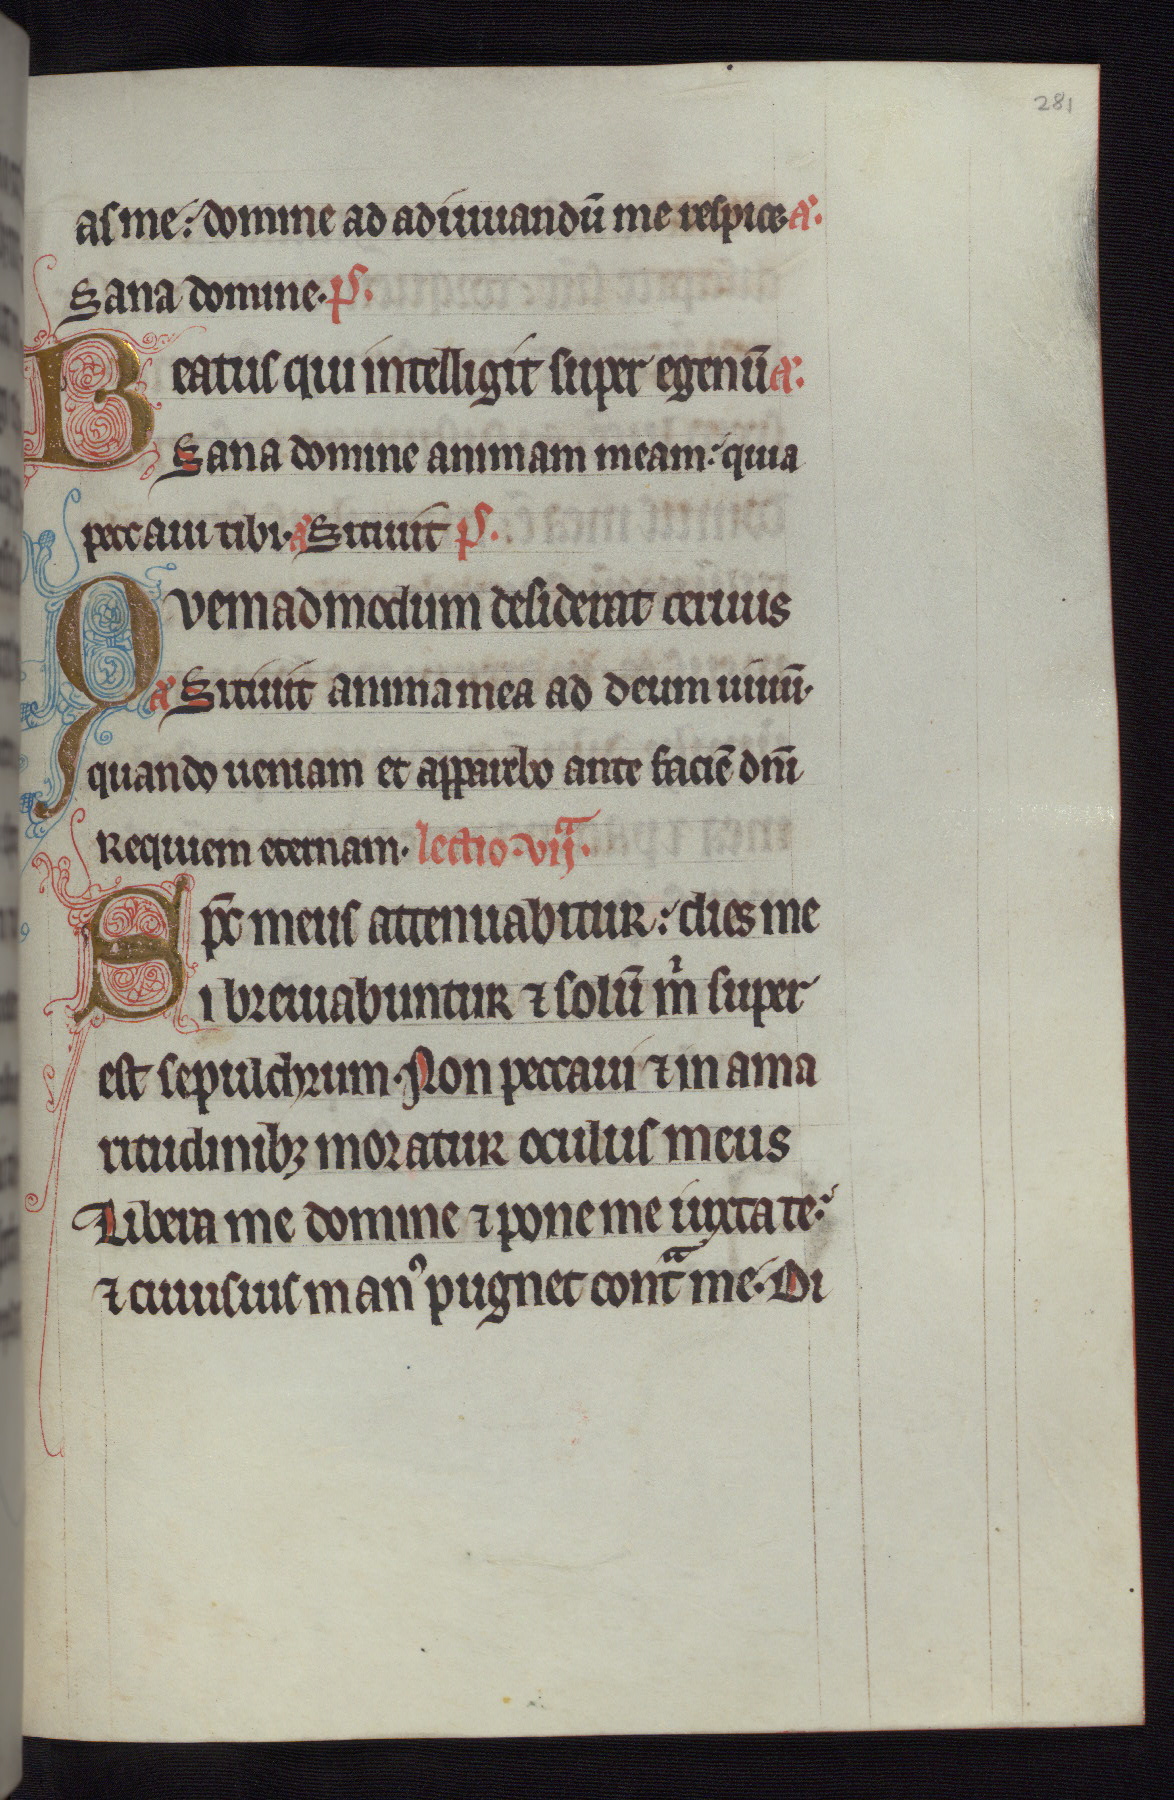 281
as me: domine ad adiuuandū me respice a.
Sana domine. ps.
Beatus qui intelligit super egenū a.
Sana domine animam meam: quia
peccaui tibi. a Sitiuit ps.
Quemadmodum desiderat ceruus
a Sitiuit anima mea ad deum uiuū.
quando ueniam et apparebo ante faciē dn̄i
Requiem eternam. lectio. vii.
Sp̄c meus attenuabitur: dies me
i breuiabuntur ⁊ solū m̄ super
est sepulchrum. Non peccaui ⁊ in ama
ritudinibꝫ moratur oculus meus
Libera me domine ⁊ pone me iuxta te:
⁊ cuiusuis manꝰ pugnet contᵃ me. Di